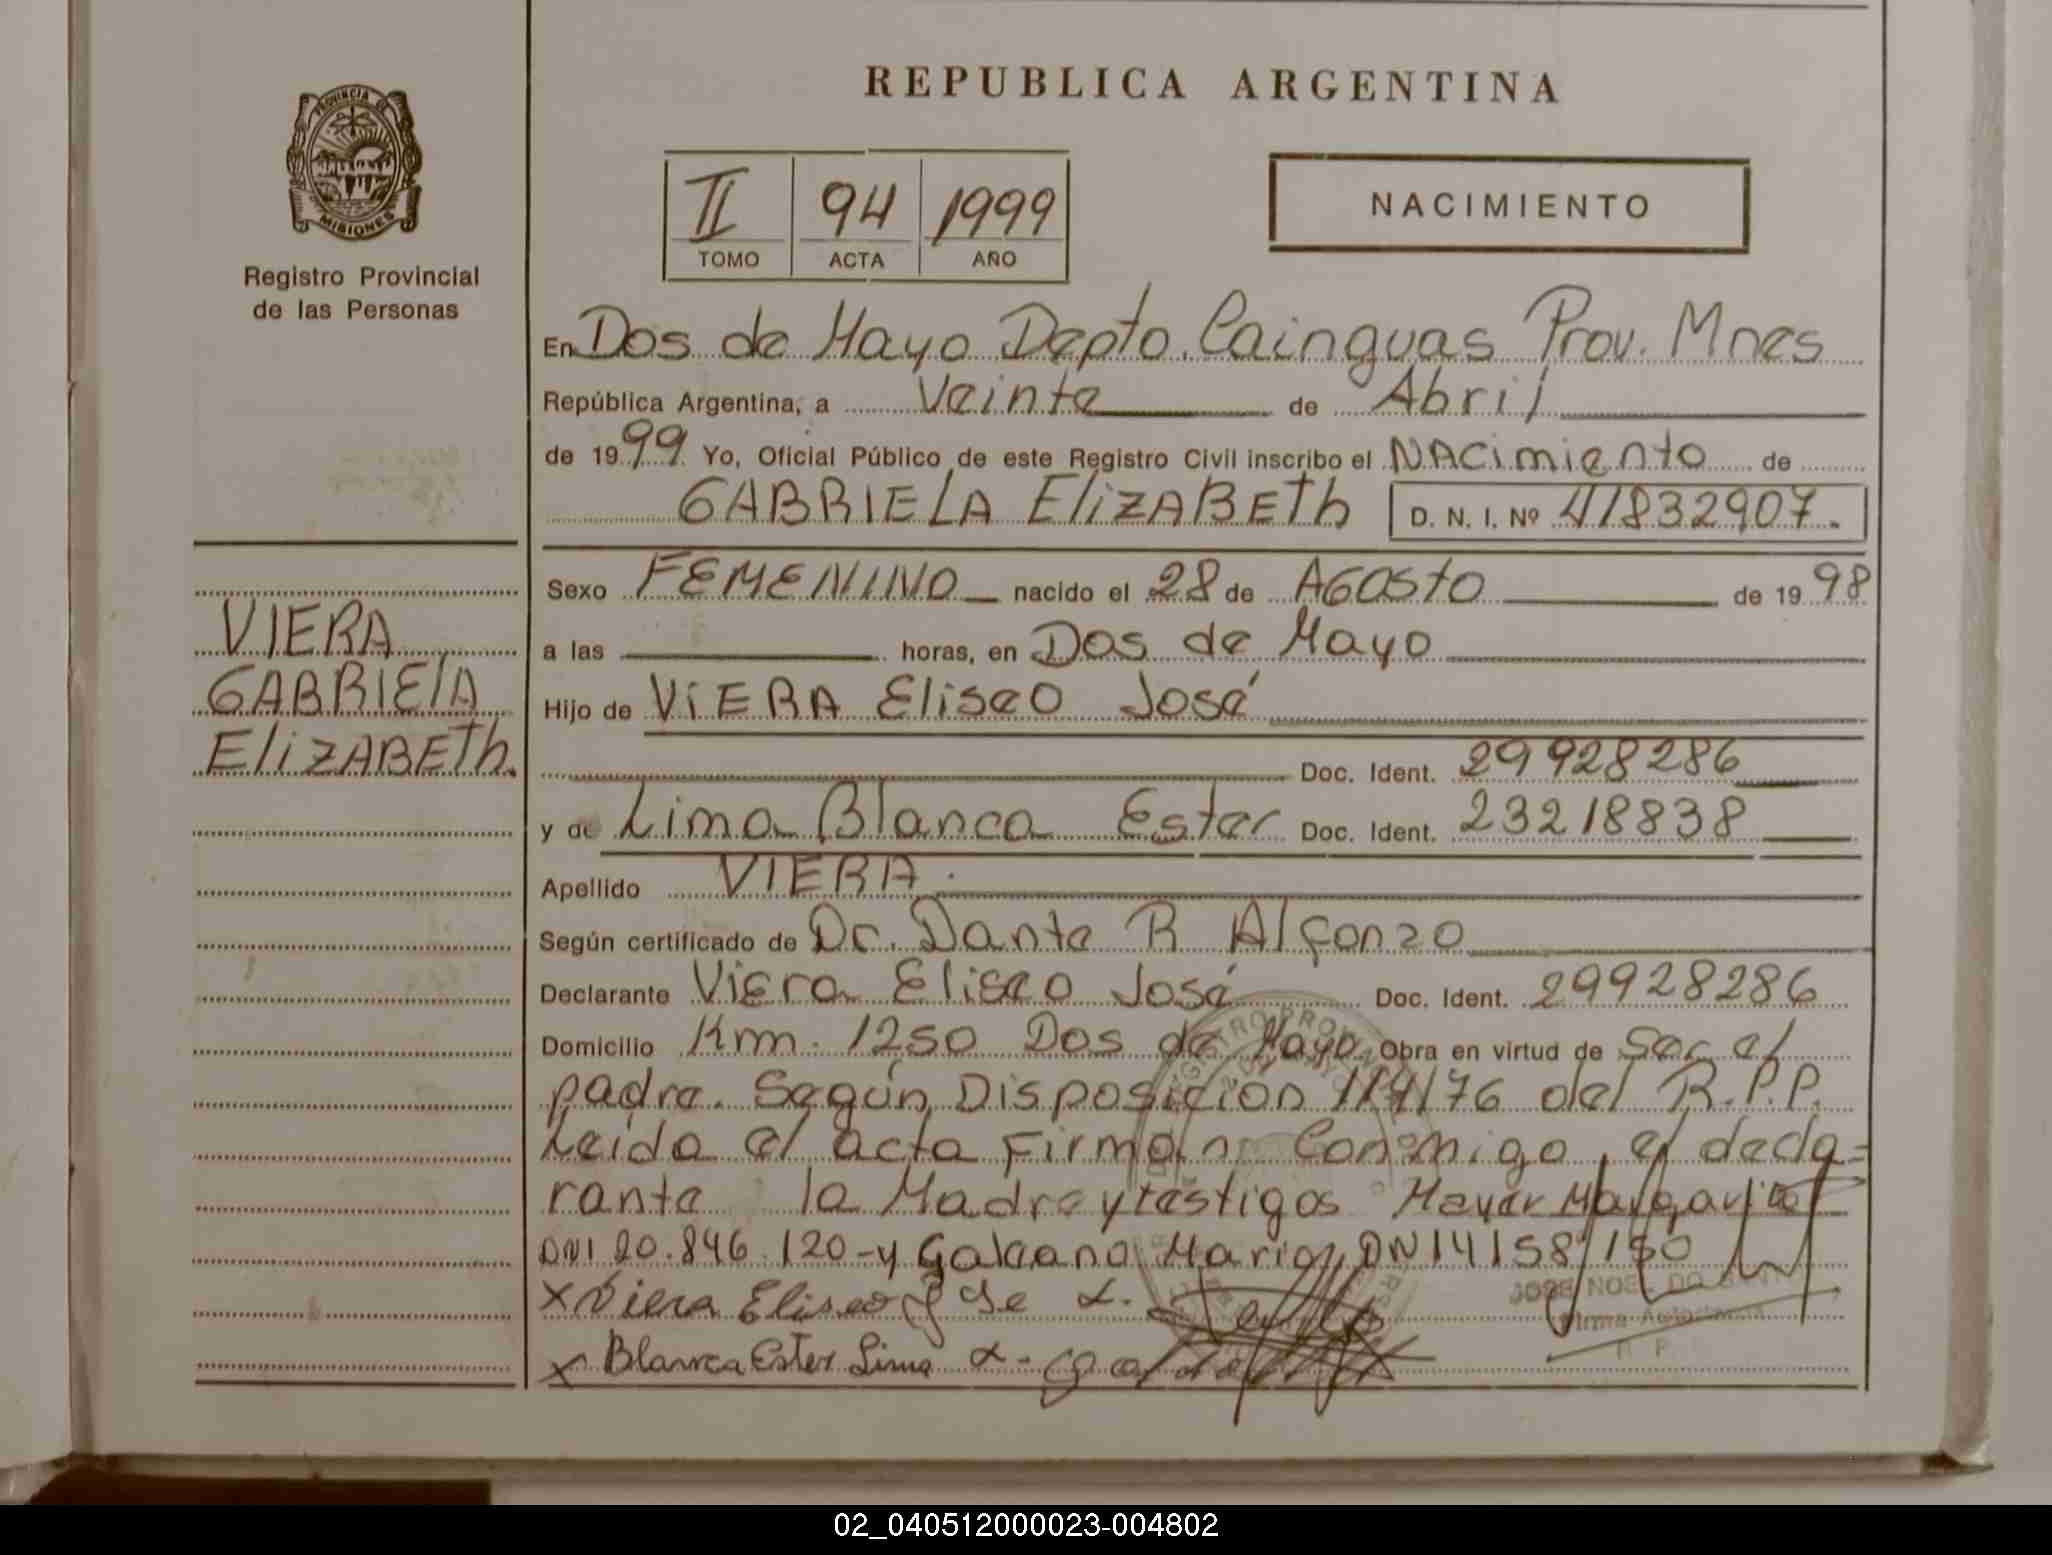 REPUBLICA ARGENTINA
PROVINCIA DE
MISIONES
Registro Provincial
de las Personas
II 94 1999
TOMO ACTA AÑO
NACIMIENTO
En Dos de Mayo Depto. Cainguas Prov. Mnes
República Argentina, a Veinte de Abril
de 1999 Yo, Oficial Público de este Registro Civil inscribo el NACimiento de
GABRIELA ElizABETh D. N. I. Nº 41832907.
Sexo FEMENINO nacido el 28 de AGOSto de 1998
a las horas, en Dos de Mayo
Hijo de ViERA Eliseo José
Doc. Ident. 29928286
y de Lima Blanca Ester Doc. Ident. 23218838
Apellido VIERA.
Según certificado de Dr. Dante R Alfonzo
Declarante Viera Eliseo José Doc. Ident. 29928286
Domicilio Km. 1250 Dos de Mayo Obra en virtud de ser el
padre. Según Disposición 114/76 del R.P.P.
Leída el acta Firman Conmigo el decla=
rante la Madre y testigos Meyer Margarita
DNI 20.846.120-y Galeano Mario DNI 14158150
x Viera Eliseo Jose
x Blanca Ester Lima
JOSE NOE
Firma Autorizada
R. P.
VIERA
GABRIElA
ElizABETh.
02_040512000023-004802